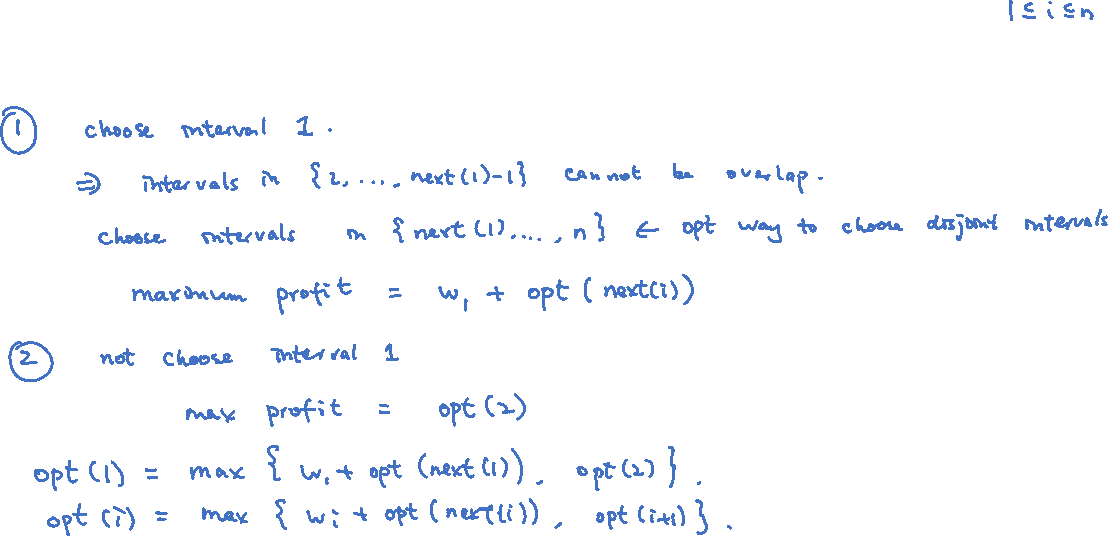 1 ≤ i ≤ n
① choose interval 1.
⇒ intervals in {2, ..., next(1)-1} cannot be overlap.
choose intervals in {next(1), ..., n} ← opt way to choose disjoint intervals
maximum profit = w₁ + opt (next(i))
② not choose interval 1
max profit = opt(2)
opt(1) = max { w₁ + opt (next(1)), opt(2) }.
opt(i) = max { wᵢ + opt (next(i)), opt(i+1) }.